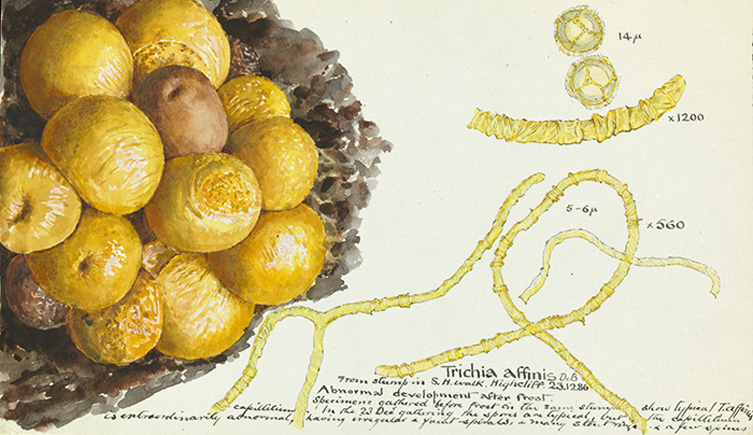 14µ
x1200
5-6µ
x560
Trichia affinis DeB
From stump in S.H. Walk, Highcliff 23.12.86
Abnormal development after frost.
Specimens gathered before frost on the same stump show typical T. affinis
capillitium. In the 23 Dec gathering the spores are typical, but the capillitium
is extraordinarily abnormal, having irregular & faint spirals, & many stout rings & a few spines